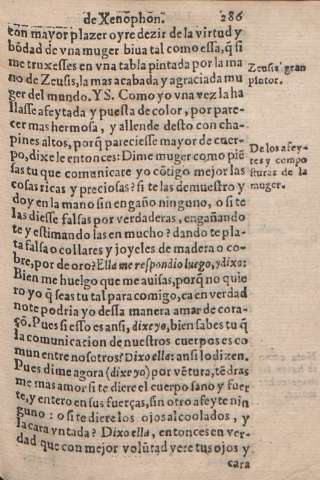 de Xenophon. 286
con mayor plazer oyre dezir de la virtud y
bõdad de vna muger biua tal como essa, q̃ si
me truxesses en vna tabla pintada por la ma
no de Zeusis, la mas acabada y agraciada mu
ger del mundo. YS. Como yo vna vez la ha
llasse afeytada y puesta de color, por pare-
cer mas hermosa, y allende desto con cha-
pines altos, porq̃ pareciesse mayor de cuer-
po, dixe le entonces: Dime muger como piẽ
sas tu que comunicare yo cõtigo mejor las
cosas ricas y preciosas? si te las demuestro y
doy en la mano sin engaño ninguno, o si te
las diesse falsas por verdaderas, engañando
te y estimando las en mucho? dando te pla-
ta falsa o collares y joyeles de madera o co-
bre, por de oro? Ella me respondio luego, y dixo:
Bien me huelgo que me auisas, porq̃ no quie
ro yo q̃ seas tu tal para comigo, ca en verdad
no te podria yo dessa manera amar de cora-
çõ. Pues si esso es ansi, dixe yo, bien sabes tu q̃
la comunicacion de nuestros cuerpos es co
mun entre nosotros? Dixo ella: ansi lo dizen.
Pues dime agora (dixe yo) por vẽtura, tẽ dras
me mas amor si te diere el cuerpo sano y fuer
te, y entero en sus fuerças, sin otro afeyte nin
guno: o si te diere los ojos alcoolados, y
la cara vntada? Dixo ella, entonces en ver-
dad que con mejor volũtad vere tus ojos y
cara
Zeusis gran
pintor.
De los afey-
tes y compo
sturas de la
muger.